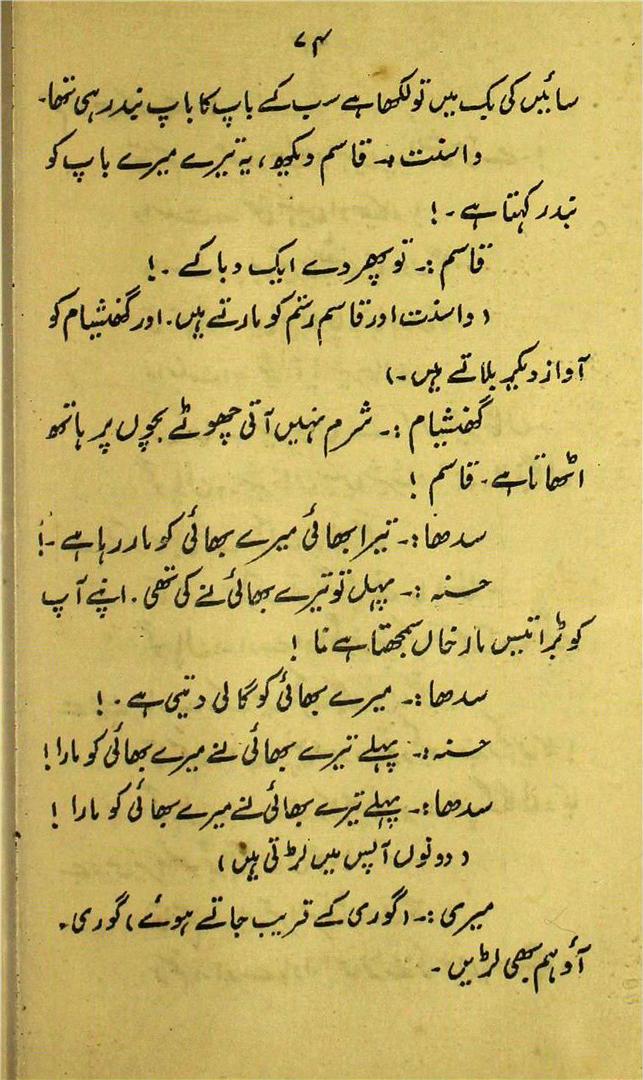 ۷۴
سائیں کی بک میں تو لکھا ہے سب کے باپ کا باپ بندر ہی تھا۔
واسنت :۔ قاسم دیکھو، یہ تیرے میرے باپ کو
بندر کہتا ہے۔!
قاسم :۔ تو پھر دے ایک دبا کے ۔!
(واسنت اور قاسم رستم کو مارتے ہیں۔ اور گھنشیام کو
آواز دیکر بلاتے ہیں۔)
گھنشیام :۔ شرم نہیں آتی چھوٹے بچوں پر ہاتھ
اٹھاتا ہے۔ قاسم !
سدھا :۔ تیرا بھائی میرے بھائی کو مار رہا ہے۔!
حسنہ :۔ پہل تو تیرے بھائی نے کی تھی۔ اپنے آپ
کو بڑا تیس مار خاں سمجھتا ہے نا !
سدھا :۔ میرے بھائی کو گالی دیتی ہے۔!
حسنہ :۔ پہلے تیرے بھائی نے میرے بھائی کو مارا!
سدھا :۔ پہلے تیرے بھائی نے میرے بھائی کو مارا !
(دونوں آپس میں لڑتی ہیں)
میری :۔ (گوری کے قریب جاتے ہوئے) گوری۔
آؤ ہم بھی لڑیں۔